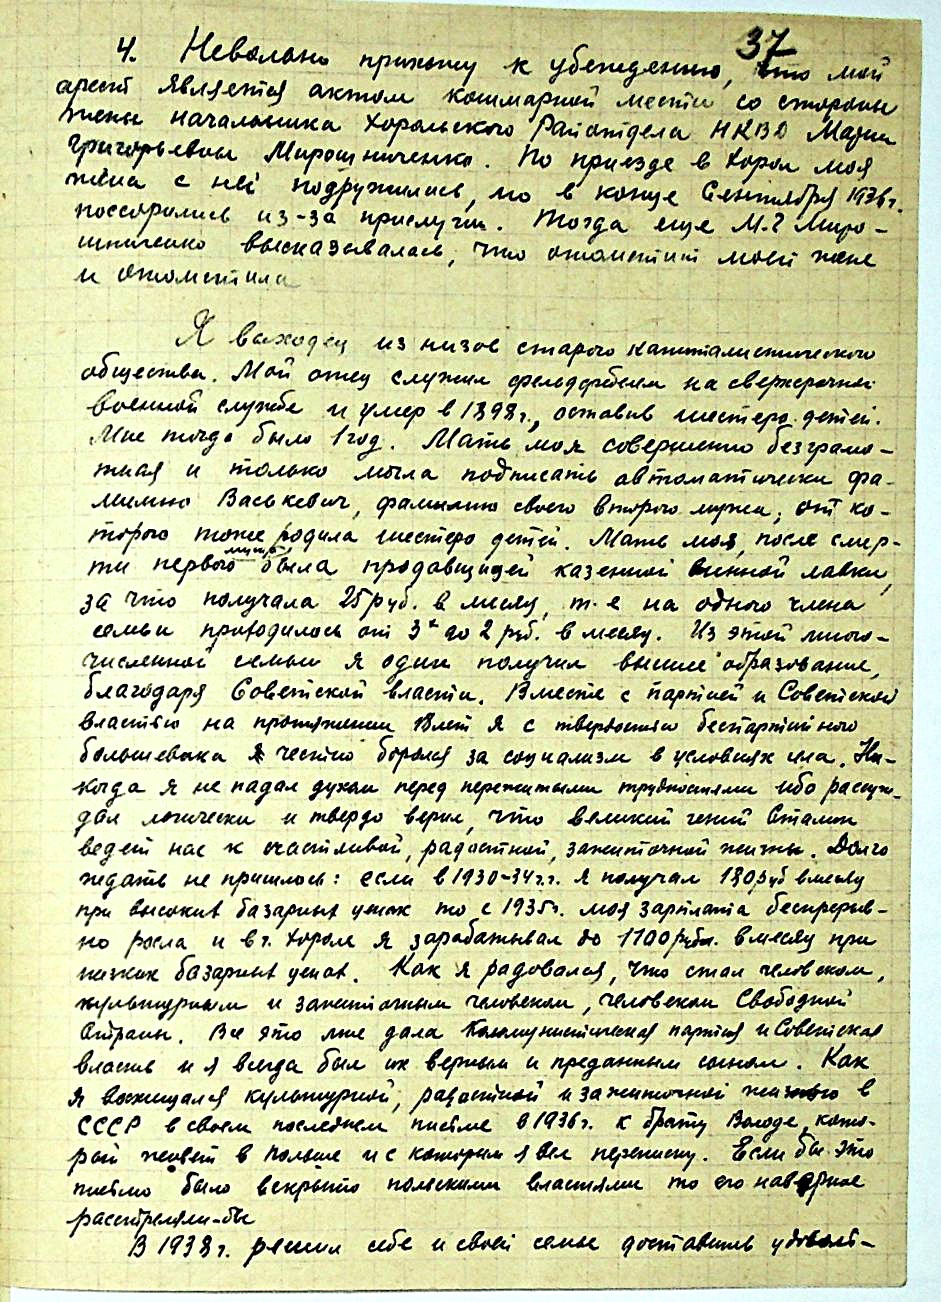 37
4. Неволано прихожу к убеждению, что мой
арест является актом кошмарной мести со стороны
жены начальника Хорольского Райотдела НКВД Марии
Григорьевны Мирошниченко. По приезде в Хорол моя
жена с ней подружилась, но в конце Сентября 1936 г.
поссорились из-за прислуги. Тогда еще М.Г Миро-
шниченко высказывалась, что отомстит моей жене
и отомстила
Я выходец из низов старого капиталистического
общества. Мой отец служил фельдфебелем на сверхсрочной
военной службе и умер в 1898 г., оставив шестеро детей.
Мне тогда было 1 год. Мать моя совершенно безграмо-
тная и только могла подписать автоматически фа-
милию Васькевич, фамилию своего второго мужа, от ко-
торого тоже родила шестеро детей. Мать моя, после смер-
ти первого мужа, была продавщицей казенной винной лавки,
за что получала 25 руб. в месяц, т.е на одного члена
семьи приходилось от 3х до 2 руб. в месяц. Из этой много-
численной семьи я один получил высшее образование,
благодаря Советской власти. Вместе с партией и Советской
властью на протяжении лет я с твердостью беспартийного
большевика честно боролся за социализм в условиях села. Ни-
когда я не падал духом перед пережитыми трудностями ибо рассуж-
дал логически и твердо верил, что великий гений Сталин
ведет нас к счастливой, радостной, зажиточной жизни. Долго
ждать не пришлось: если в 1930-34 г.г. я получал 180 руб в месяц
при высоких базарных ценах то с 1935 г. моя зарплата беспрерыв-
но росла и в г. Хороле я зарабатывал до 1100 рубл. в месяц при
низких базарных ценах. Как я радовался, что стал человеком,
культурным и зажиточным человеком, человеком Свободной
Страны. Все это мне дала Коммунистическая партия и Советская
власть и я всегда был их верным и преданным сыном. Как
я восхищался культурной, радостной и зажиточной жизнью в
СССР в своем последнем письме в 1936 г. к брату Володе, кото-
рый живет в Польше и с которым я вел переписку. Если бы это
письмо было вскрыто польскими властями то его наверное
расстреляли-бы
В 1938 г. решил себе и своей семье доставить удоволь-